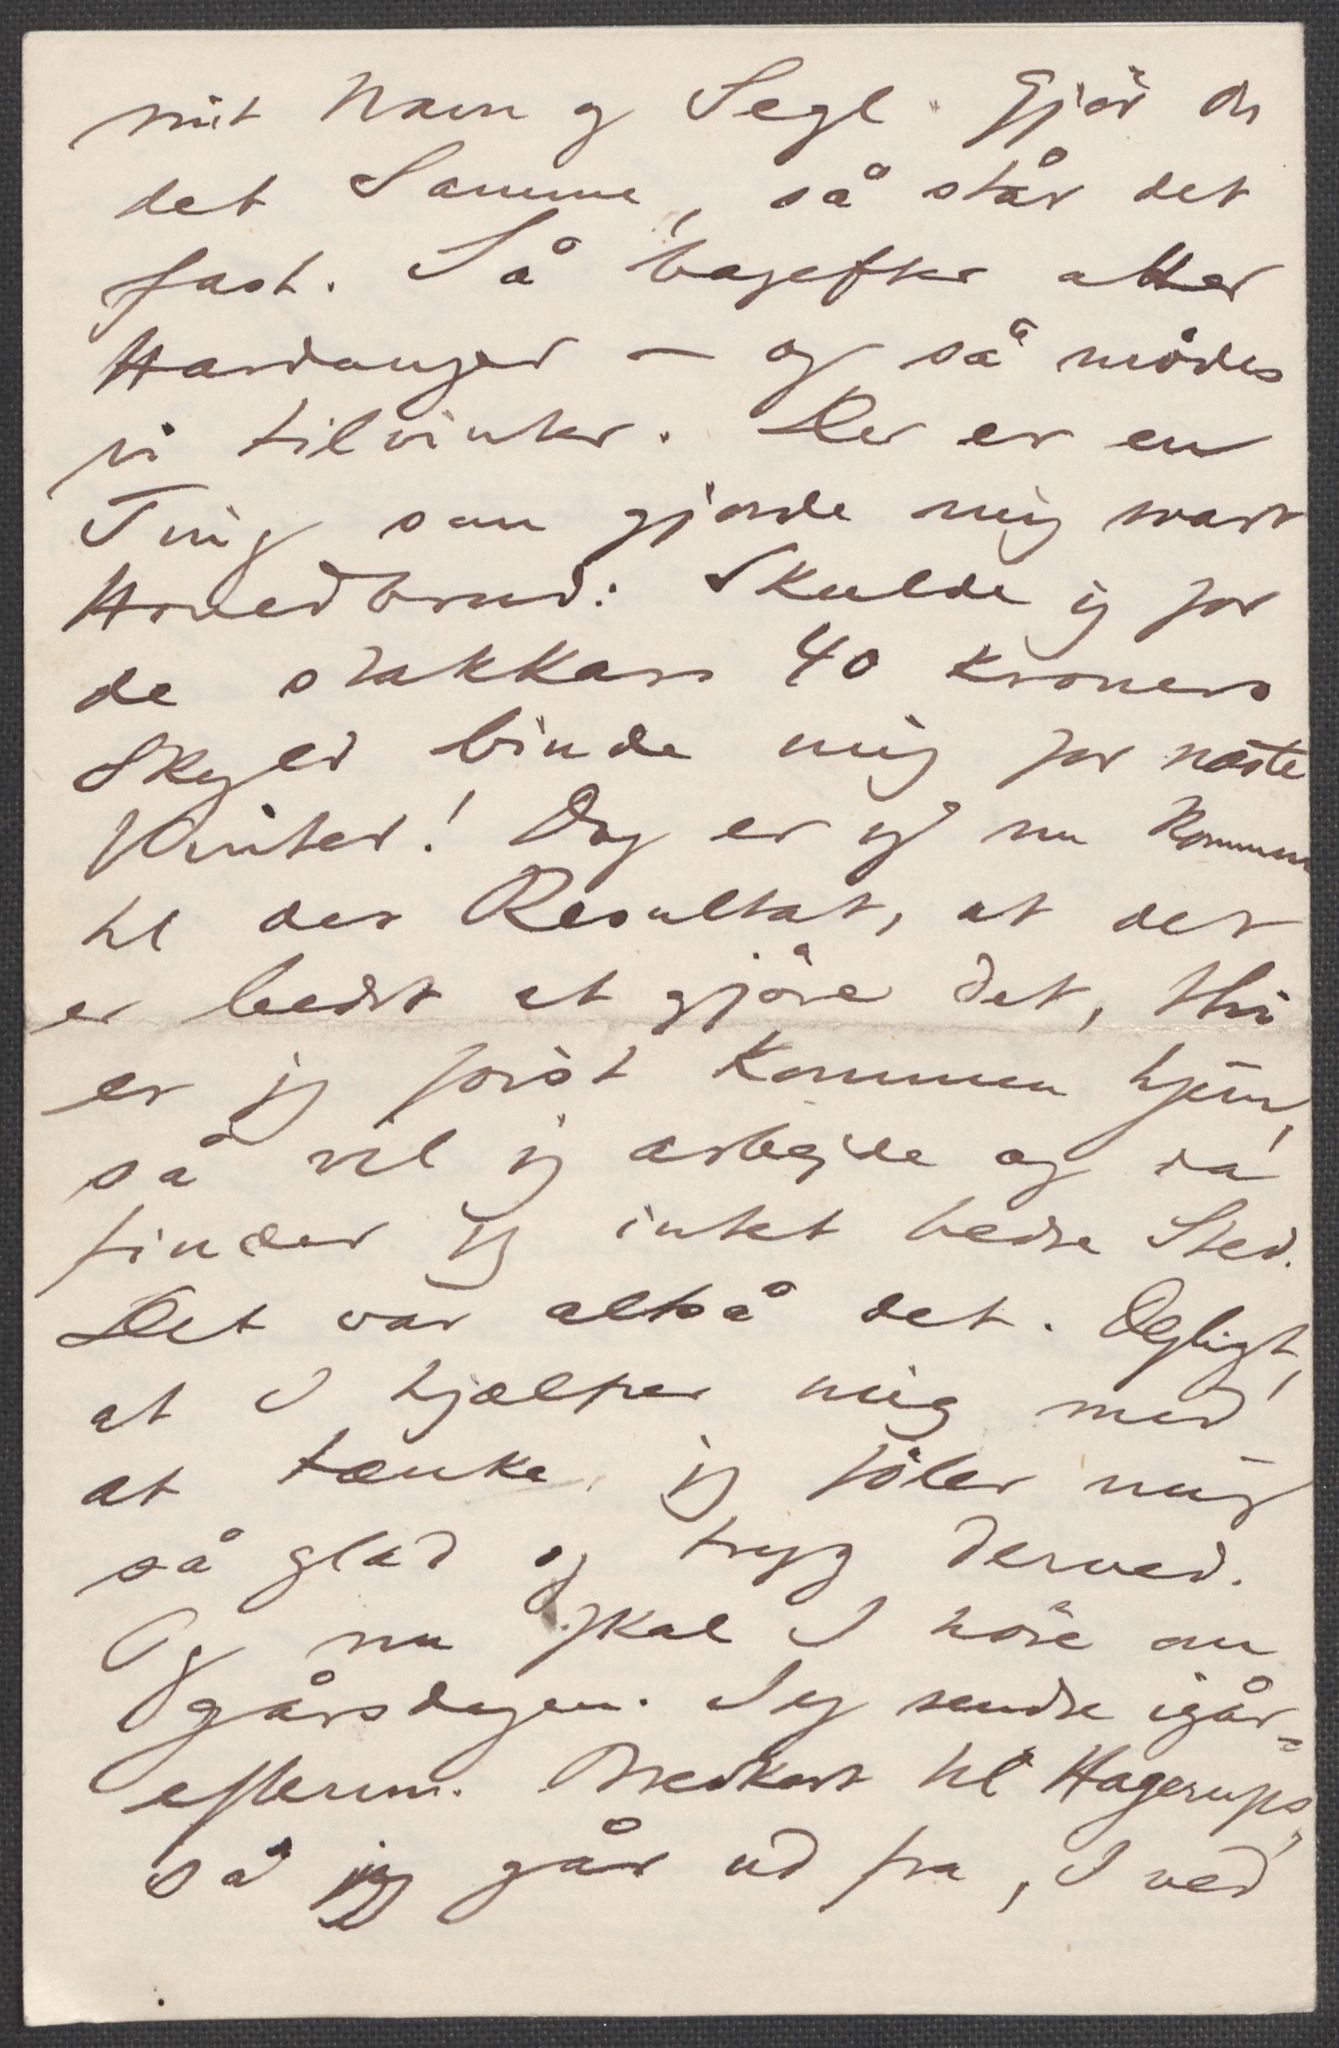 mit Navn og Segl. Gjör du
det Samme, så står det
fast. Så bagefter atter
Hardanger — og så mödes
vi tilvinter. Der er en
Ting som gjorde mig svart
Hovedbrud: Skulde jeg for
de stakkars 40 Kroners
Skyld binde mig for næste
Vinter! Dog er jeg nu kommen
til det Resultat, at det
er bedst at gjöre det, thi
er jeg först kommen hjem,
så vil jeg arbejde og da
finder jeg intet bedre Sted.
Det var altså det. Dejligt,
at I hjælper mig med
at tænke, jeg föler mig
så glad og tryg derved.
Og nu skal I höre om
gårsdagen. Jeg sendte igår=
efterm. Brevkort til Hagerups,
så jeg går ud fra, I ved